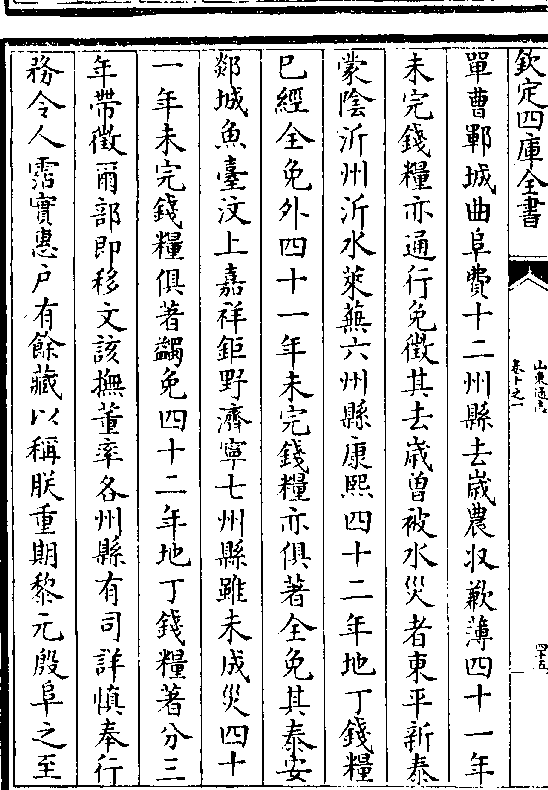 欽定四庫全書
山東通志
卷十之一
四十五
單曹鄆城曲阜費十二州縣去嵗農収歉薄四十一年
未完錢糧亦通行免徵其去嵗曽被水災者東平新泰
蒙隂沂州沂水萊蕪六州縣康熙四十二年地丁錢糧
已經全免外四十一年未完錢糧亦俱著全免其泰安
郯城魚臺汶上嘉祥鉅野濟寧七州縣雖未成災四十
一年未完錢糧俱著蠲免四十二年地丁錢糧著分三
年帶徵爾部即移文該撫董率各州縣有司詳慎奉行
務令人霑實惠户有餘藏以稱朕重期黎元殷阜之至